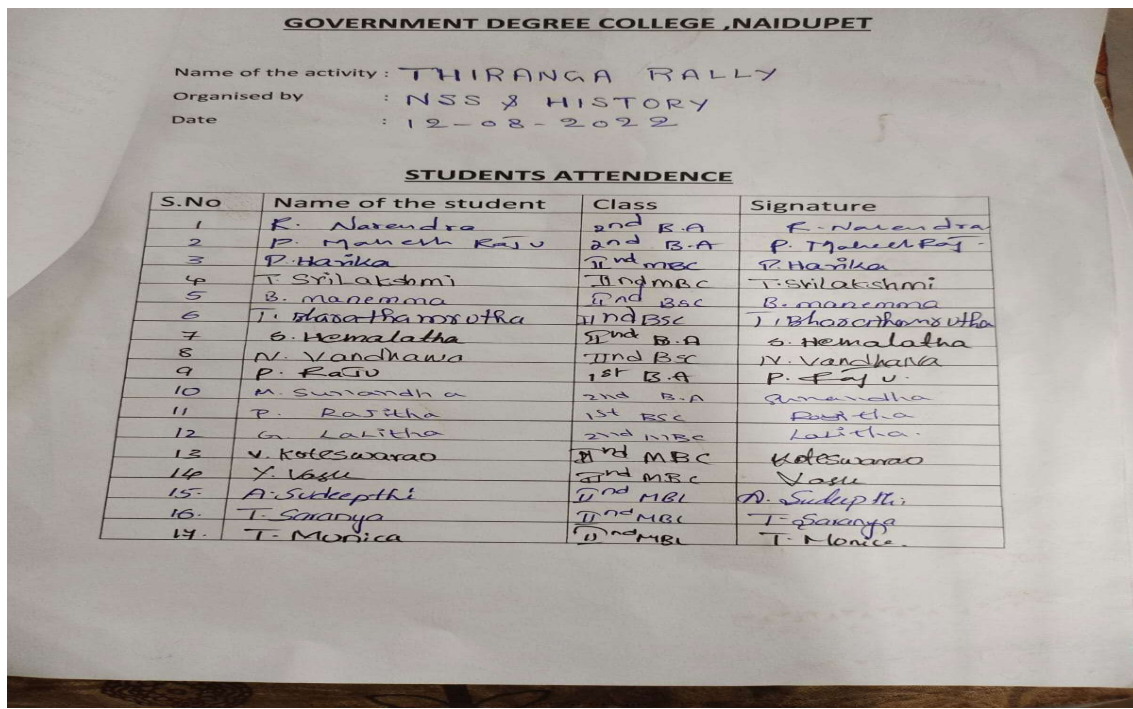 GOVERNMENT DEGREE COLLEGE ,NAIDUPET
Name of the activity : THIRANGA RALLY
Organised by : NSS & HISTORY
Date : 12-08-2022
STUDENTS ATTENDENCE
S.No Name of the student Class Signature
1 K. Narendra 2nd B.A K. Narendra
2 P. Mahesh Raju 2nd B.A P. Mahesh Raj
3 P. Harika IInd MBC P. Harika
4 T. Srilakshmi IInd MBC T. Srilakshmi
5 B. manemma IInd BSC B. manemma
6 T. Bharathamrutha IInd BSC T. Bharathamrutha
7 S. Hemalatha IInd B.A S. Hemalatha
8 N. Vandhana IInd BSC N. Vandhana
9 P. Raju 1st B.A P. Raju.
10 M. Sunandha 2nd B.A Sunandha
11 P. Rajitha 1st BSC Rajitha
12 G. Lalitha 2nd MBC Lalitha.
13 V. Koteswarao IInd MBC Koteswarao
14 Y. Vasu IInd MBC Vasu
15. A. Sudeepthi IInd MBC A. Sudeepthi
16. T. Saranya IInd MBC T. Saranya
17. T. Monica IInd MBC T. Monica.